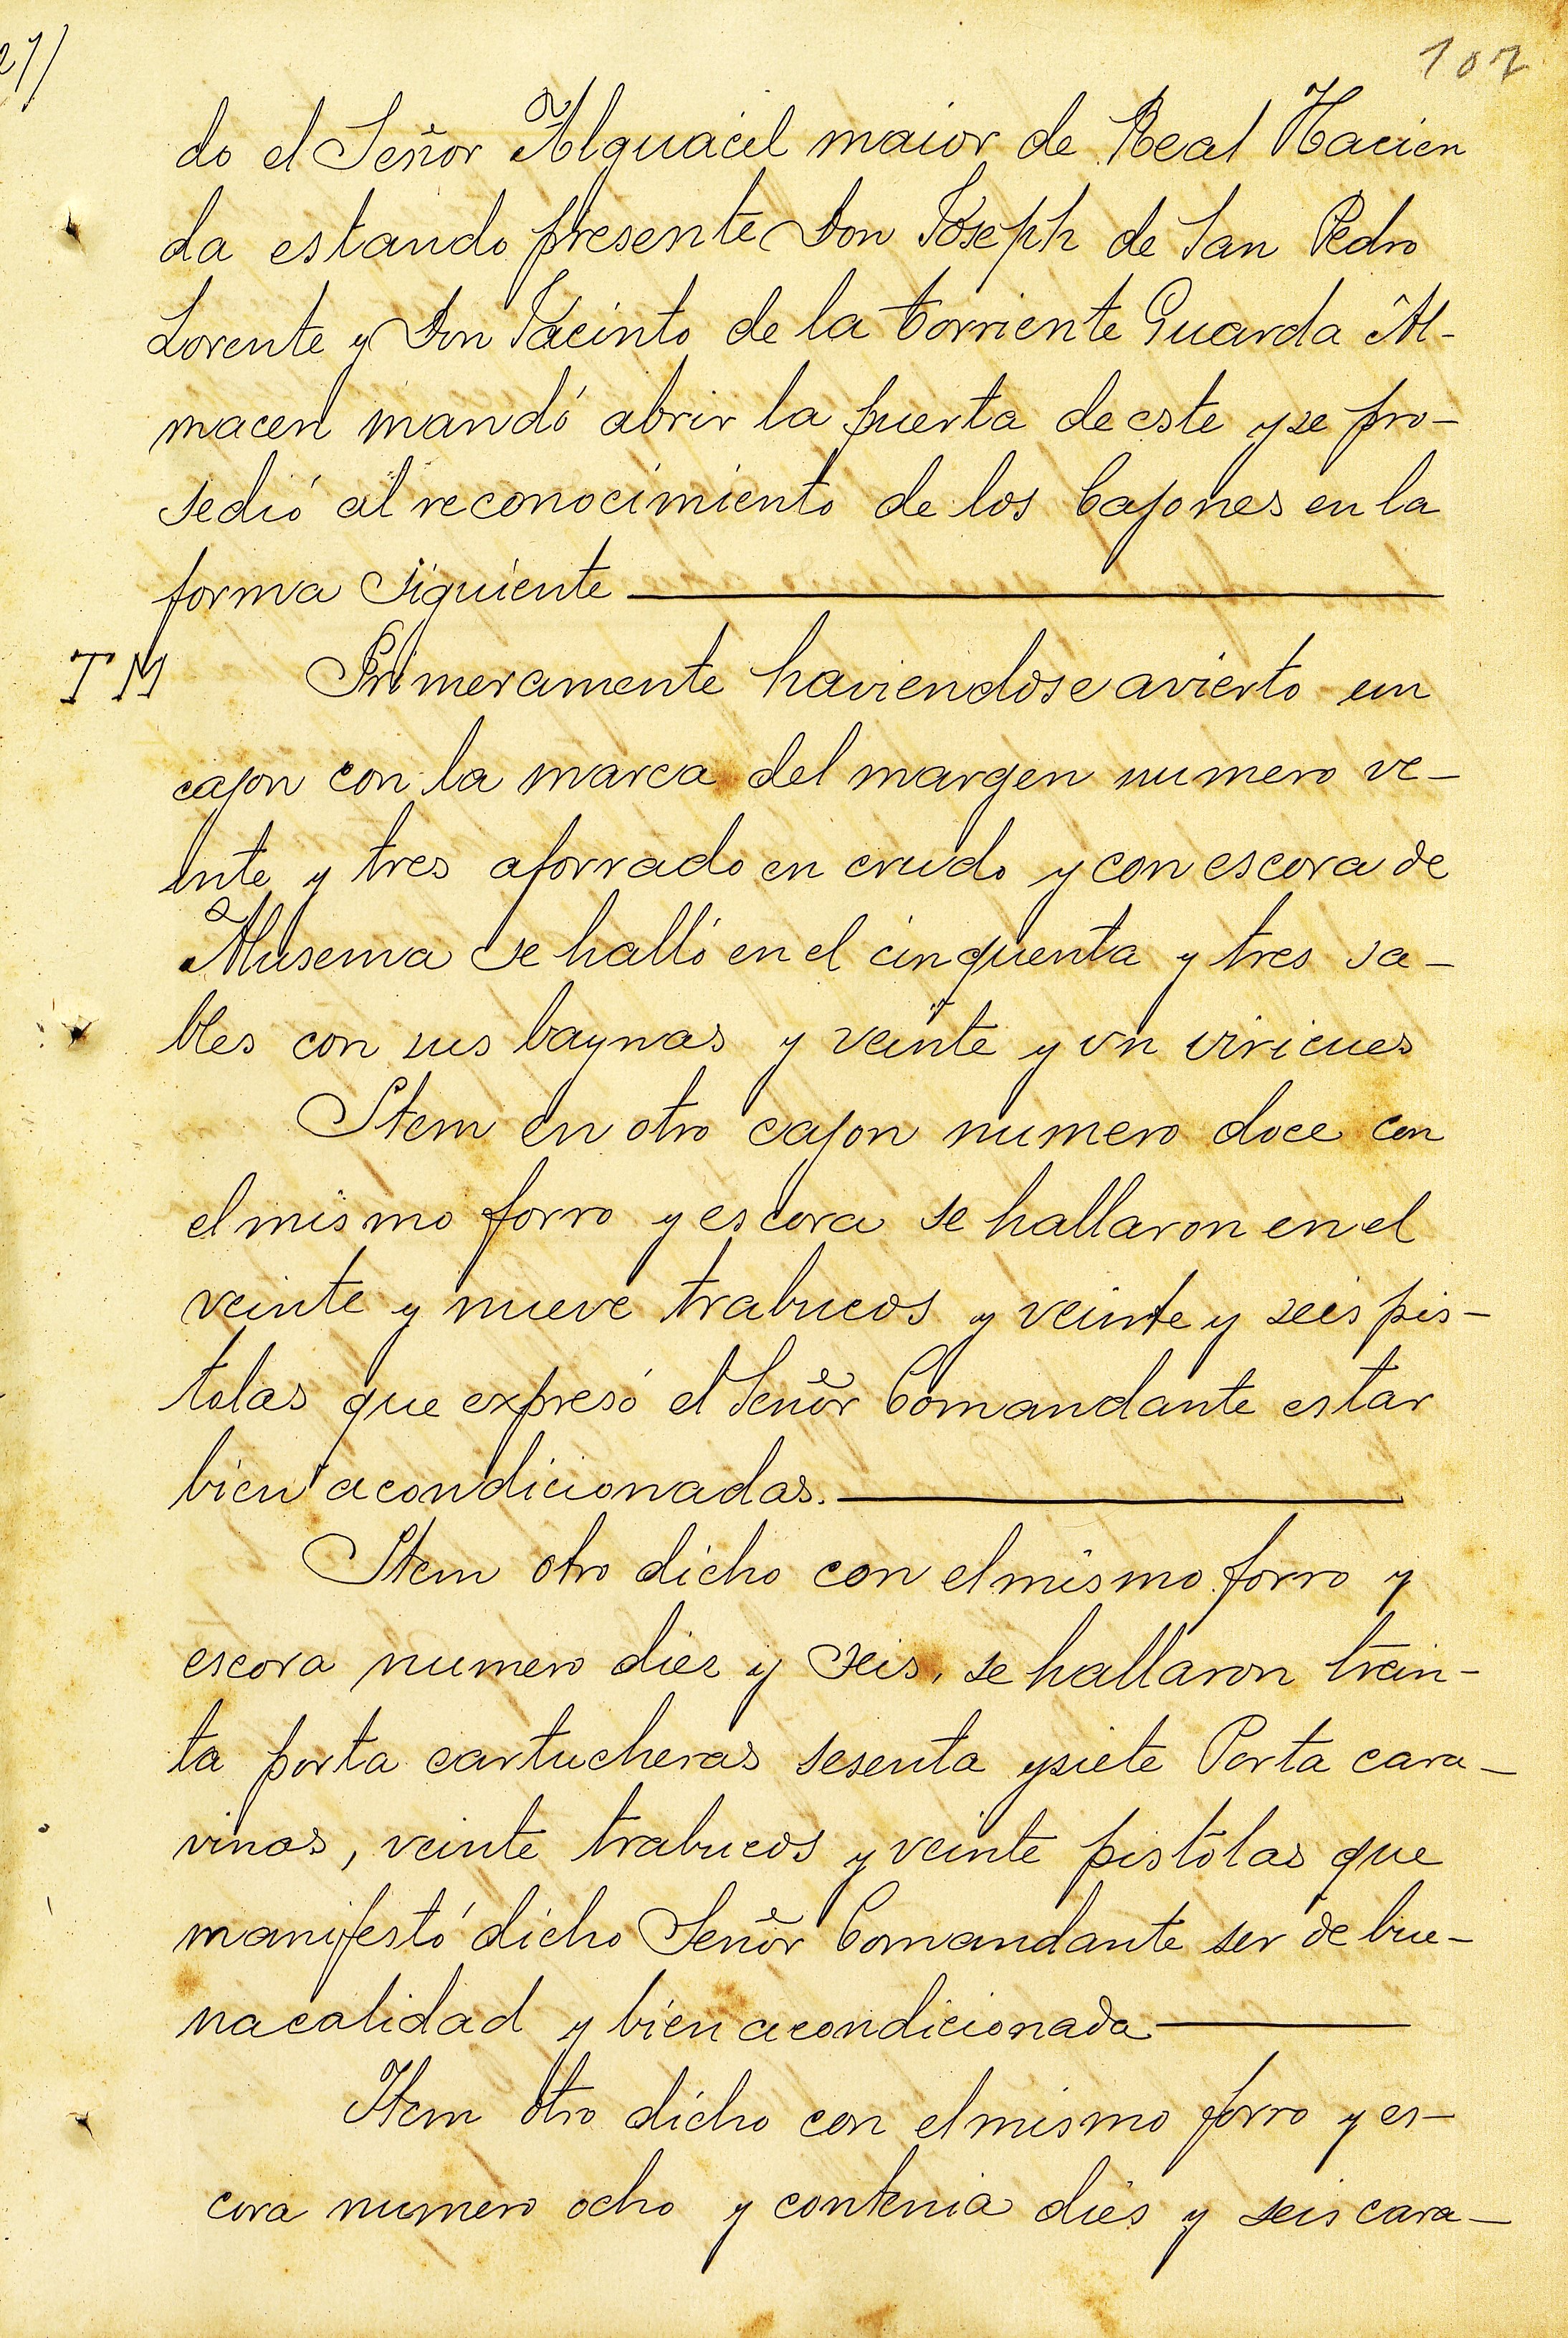 107
do el Señor Alguacil maior de Real Hacien
da estando presente Don Joseph de San Pedro
Lorente y Don Jacinto de la Torriente Guarda Al-
macen mandó abrir la puerta de este y se pro-
sedió al reconocimiento de los Cajones en la
forma siguiente
TM Primeramente haviendose avierto un
cajon con la marca del margen numero ve-
inte y tres aforrado en crudo y con escora de
Alusema se halló en el cinquenta y tres sa-
bles con sus baynas y veinte y vn viricues
Item en otro cajon numero doce con
el mismo forro y escora se hallaron en el
veinte y nueve trabucos y veinte y seis pis-
tolas que expresó el Señor Comandante estar
bien acondicionadas.
Item otro dicho con el mismo forro y
escora numero diez y seis, se hallaron trein-
ta porta cartucheras sesenta y siete Porta cara-
vinas, veinte trabucos y veinte pistolas que
manifestó dicho Señor Comandante ser de bue-
na calidad y bien acondicionada
Item otro dicho con el mismo forro y es-
cora numero ocho y contenia dies y seis cara-